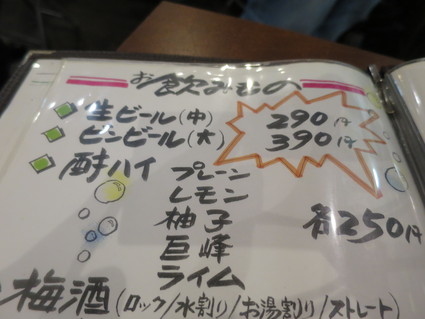 お飲みもの
生ビール(中) 290円
ビンビール(大) 390円
酎ハイ プレーン
レモン
柚子 各250円
巨峰
ライム
梅酒(ロック/水割り/お湯割り/ストレート)